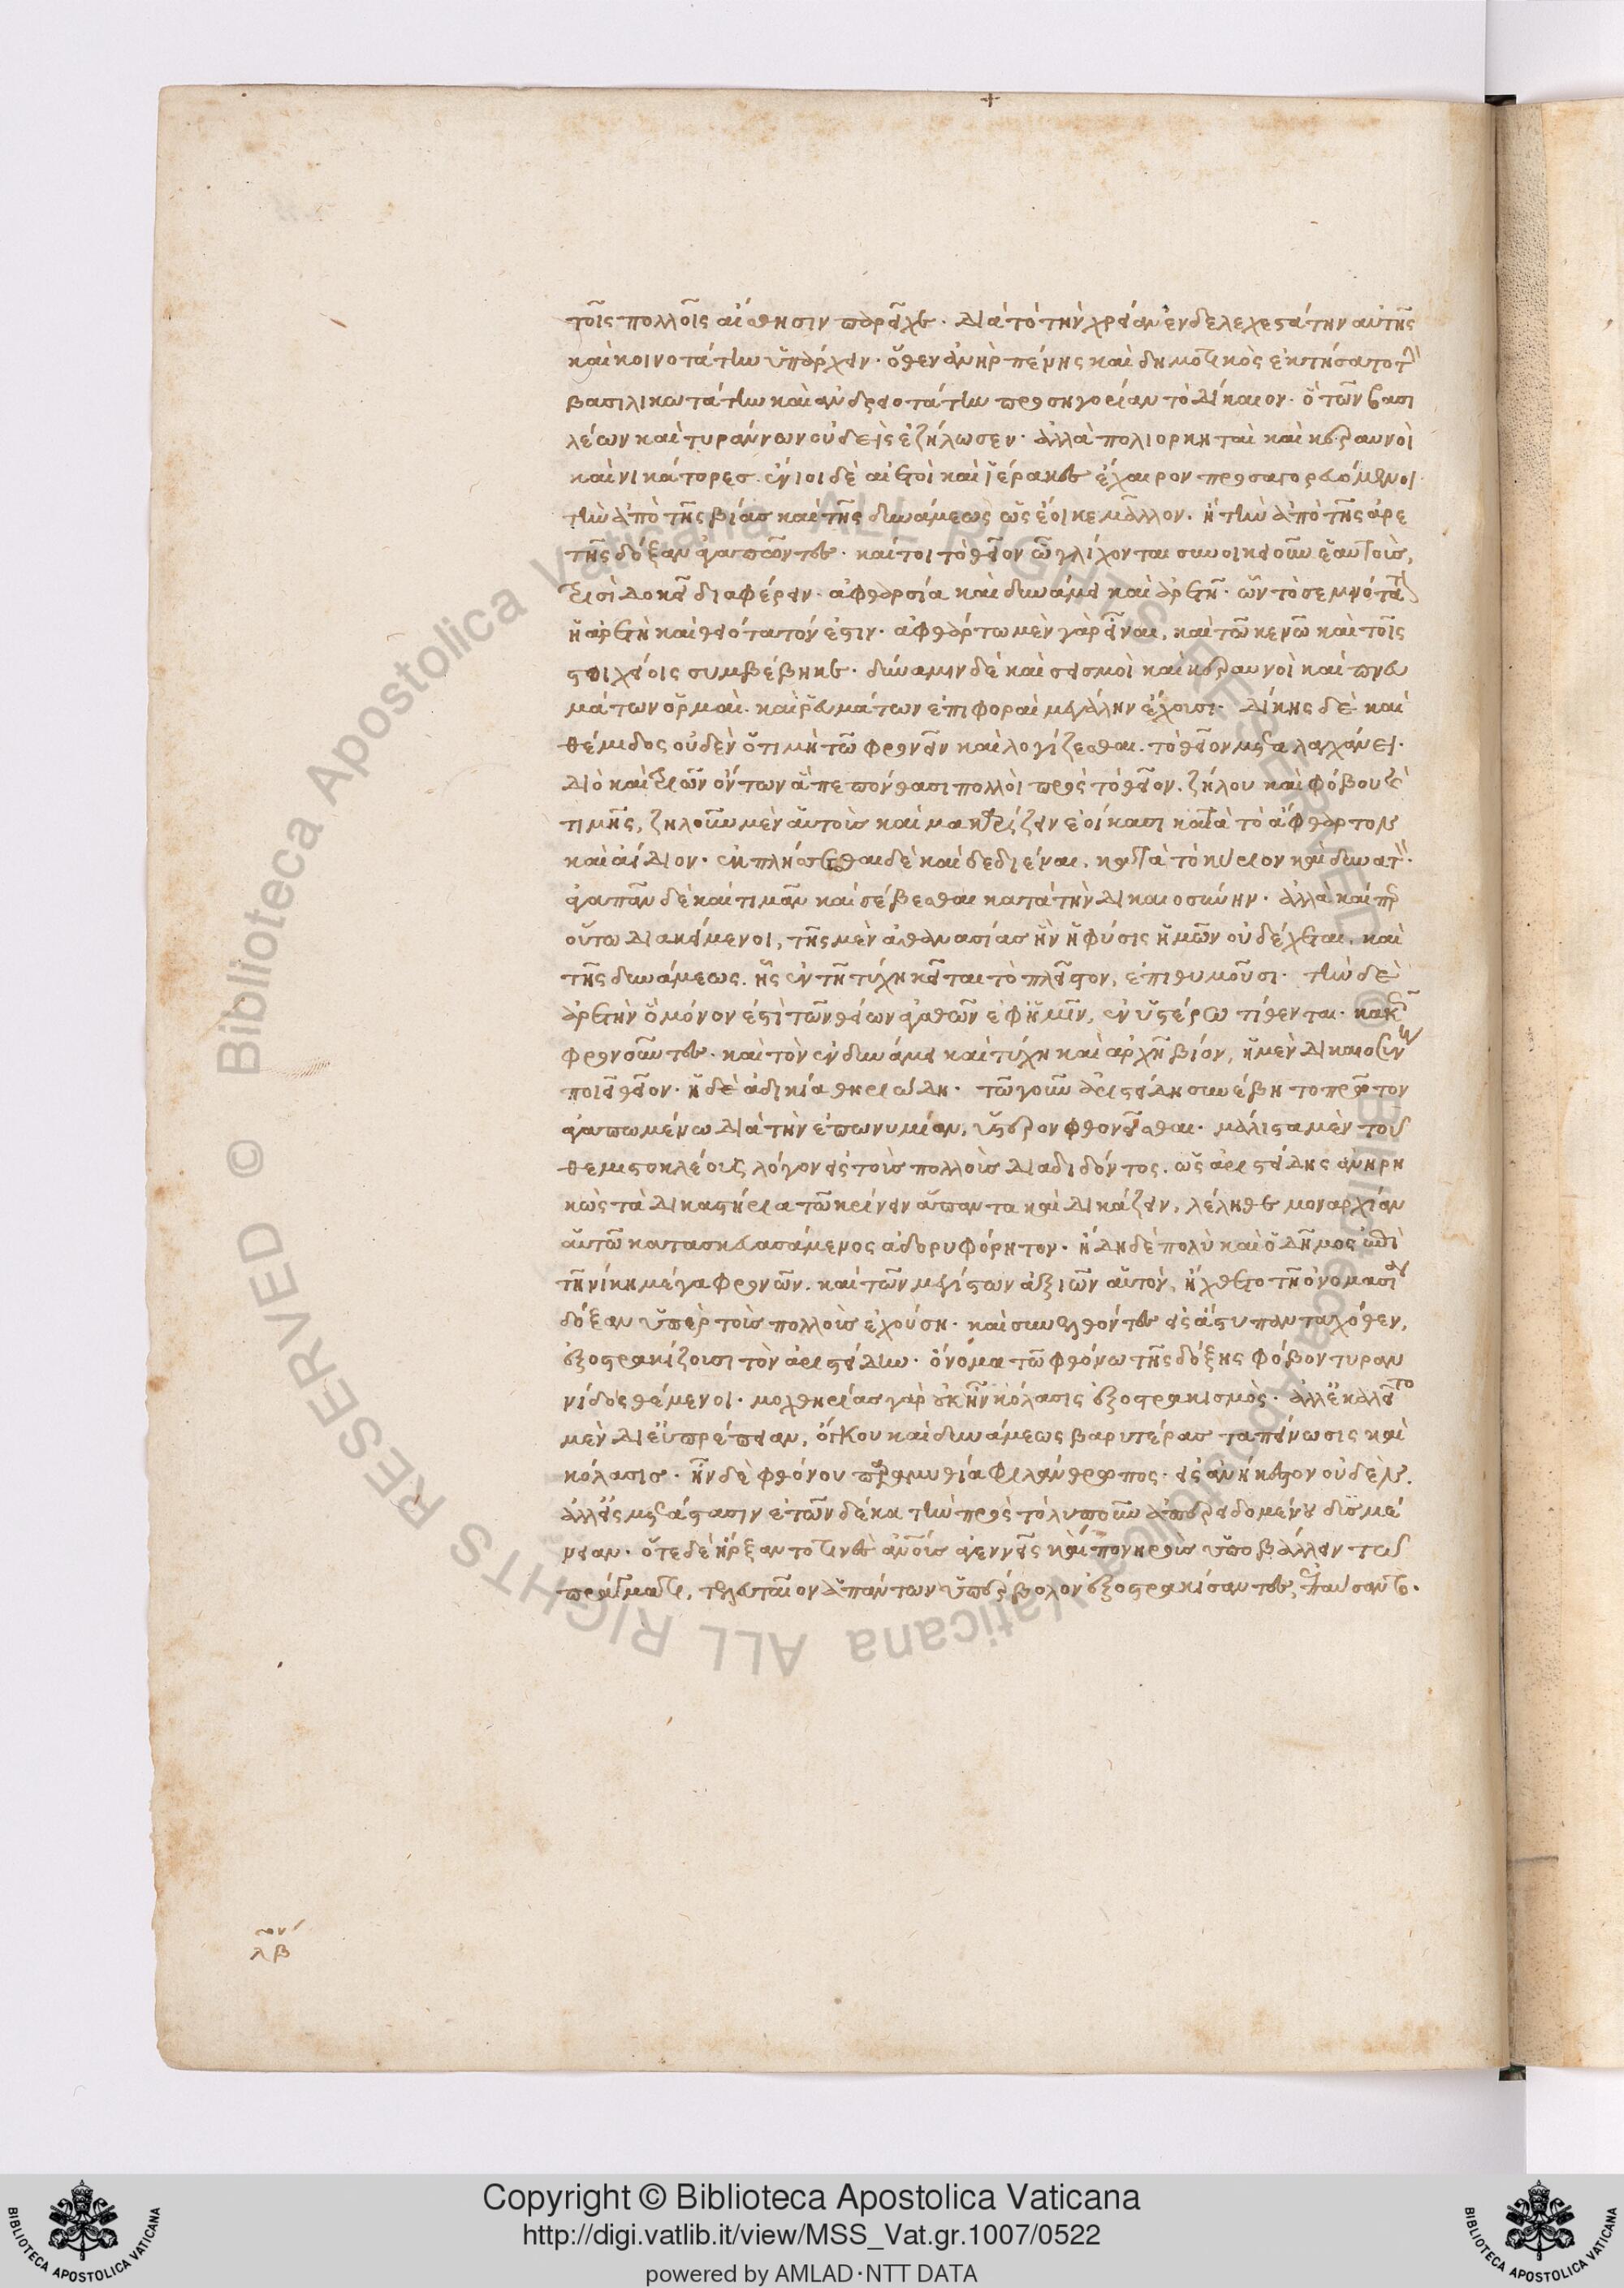 τοῖς πολλοῖς αἴσθησιν παρεῖχε. διὰ τὸ τὴν χρείαν ἐνδελεχεστάτην αὐτῆς
καὶ κοινοτάτην ὑπάρχειν. ὅθεν ἀνὴρ πένης καὶ δημοτικὸς ἐκτήσατο τὴν
βασιλικωτάτην καὶ ἀνδρειοτάτην προσηγορίαν τὸ δίκαιον. ὃ τῶν βασι
λέων καὶ τυράννων οὐδεὶς ἐζήλωσεν. ἀλλὰ πολιορκηταὶ καὶ κεραυνοὶ
καὶ νικάτορες. ἔνιοι δὲ αἰετοὶ καὶ ἱέρακες ἔχαιρον προσαγορευόμενοι
τὴν ἀπὸ τῆς βίας καὶ τῆς δυνάμεως ὡς ἔοικε μᾶλλον. ἢ τὴν ἀπὸ τῆς ἀρε
τῆς δόξαν ἀγαπῶντες. καίτοι τὸ θεῖον ᾧ γλίχονται συνοικειοῦν ἑαυτοὺς,
τρισὶ δοκεῖ διαφέρειν. ἀφθαρσία καὶ δυνάμει καὶ ἀρετῇ. ὧν τὸ σεμνότατον
ἡ ἀρετὴ καὶ θειότατόν ἐστιν. ἀφθάρτω μὲν γὰρ εἶναι, καὶ τῶ κενῶ καὶ τοῖς
στοιχείοις συμβέβηκε. δύναμιν δὲ καὶ σεισμοὶ καὶ κεραυνοὶ καὶ πνευ
μάτων ὁρμαὶ. καὶ ῥευμάτων ἐπιφοραὶ μεγάλην ἔχουσι. δίκης δὲ καὶ
θέμιδος οὐδὲν ὅτι μὴ τῶ φρονεῖν καὶ λογίζεσθαι. τὸ θεῖον μεταλαγχάνει.
διὸ καὶ τριῶν ὄντων ἃ πεπόνθασι πολλοὶ πρὸς τὸ θεῖον. ζήλου καὶ φόβου καὶ
τιμῆς, ζηλοῦν μὲν αὐτοὺς καὶ μακαρίζειν ἐοίκασι κατὰ τὸ ἄφθαρτον
καὶ ἀίδιον. ἐκπλήττεσθαι δὲ καὶ δεδιέναι, κατὰ τὸ κύριον καὶ δυνατόν.
ἀγαπᾶν δὲ καὶ τιμᾶν καὶ σέβεσθαι κατὰ τὴν δικαιοσύνην. ἀλλὰ καίπερ
οὕτω διακείμενοι, τῆς μὲν ἀθανασίας ἣν ἡ φύσις ἡμῶν οὐ δέχεται. καὶ
τῆς δυνάμεως. ἧς ἐν τῆ τύχη κεῖται τὸ πλεῖστον, ἐπιθυμοῦσι. τὴν δὲ
ἀρετὴν ὃ μόνον ἐστὶ τῶν θείων ἀγαθῶν ἐφ' ἡμῖν, ἐν ὑστέρω τίθενται. κακῶς
φρονοῦντες. καὶ τὸν ἐν δυνάμει καὶ τύχη καὶ ἀρχῆ βίον, ἡ μὲν δικαιοσύνη
ποιεῖ θεῖον. ἡ δὲ ἀδικία θηριώδη. τῶ γοῦν ἀριστείδη συνέβη τὸ πρῶτον
ἀγαπωμένω διὰ τὴν ἐπωνυμίαν, ὕστερον φθονεῖσθαι. μάλιστα μὲν τοῦ
θεμιστοκλέους λόγον εἰς τοὺς πολλοὺς διαδιδόντος. ὡς ἀριστείδης ἀνηρη
κὼς τὰ δικαστήρια τῶ κρίνειν ἅπαντα καὶ δικάζειν, λέληθε μοναρχίαν
αὑτῶ κατασκευασάμενος ἀδορυφόρητον. ἤδη δὲ πολὺ καὶ ὁ δῆμος ἐπὶ
τῆ νίκη μέγα φρονῶν. καὶ τῶν μεγίστων ἀξιῶν αὑτὸν, ἤχθετο τῆ ὀνομασία
δόξαν ὑπὲρ τοὺς πολλοὺς ἐχούση. καὶ συνελθόντες εἰς ἄστυ πανταχόθεν,
ἐξοστρακίζουσι τὸν ἀριστείδην. ὄνομα τῶ φθόνω τῆς δόξης φόβον τυραν
νίδος θέμενοι. μοχθηρίας γὰρ οὐκ ἦν κόλασις ἐξοστρακισμὸς. ἀλλ' ἐκαλεῖτο
μὲν δι' εὐπρέπειαν, ὄγκου καὶ δυνάμεως βαρυτέρας ταπείνωσις καὶ
κόλασις. ἦν δὲ φθόνου παραμυθία φιλάνθρωπος. εἰς ἀνήκεστον οὐδὲν.
ἀλλ' εἰς μετάστασιν ἐτῶν δέκα τὴν πρὸς τὸ λυποῦν ἀπερειδομένου δυσμέ
νειαν. ὅτε δὲ ἤρξαντο τινὲς ἀνθρώπους ἀγεννεῖς καὶ πονηροὺς ὑποβάλλειν τῶ
πράγματι, τελευταῖον ἁπάντων ὑπέρβολον ἐξοστρακίσαντες, ἐπαύσαντο.
λβ
Copyright © Biblioteca Apostolica Vaticana
http://digi.vatlib.it/view/MSS_Vat.gr.1007/0522
powered by AMLAD·NTT DATA
BIBLIOTECA APOSTOLICA VATICANA
BIBLIOTECA APOSTOLICA VATICANA
© Biblioteca Apostolica Vaticana ALL RIGHTS RESERVED
© Biblioteca Apostolica Vaticana ALL RIGHTS RESERVED